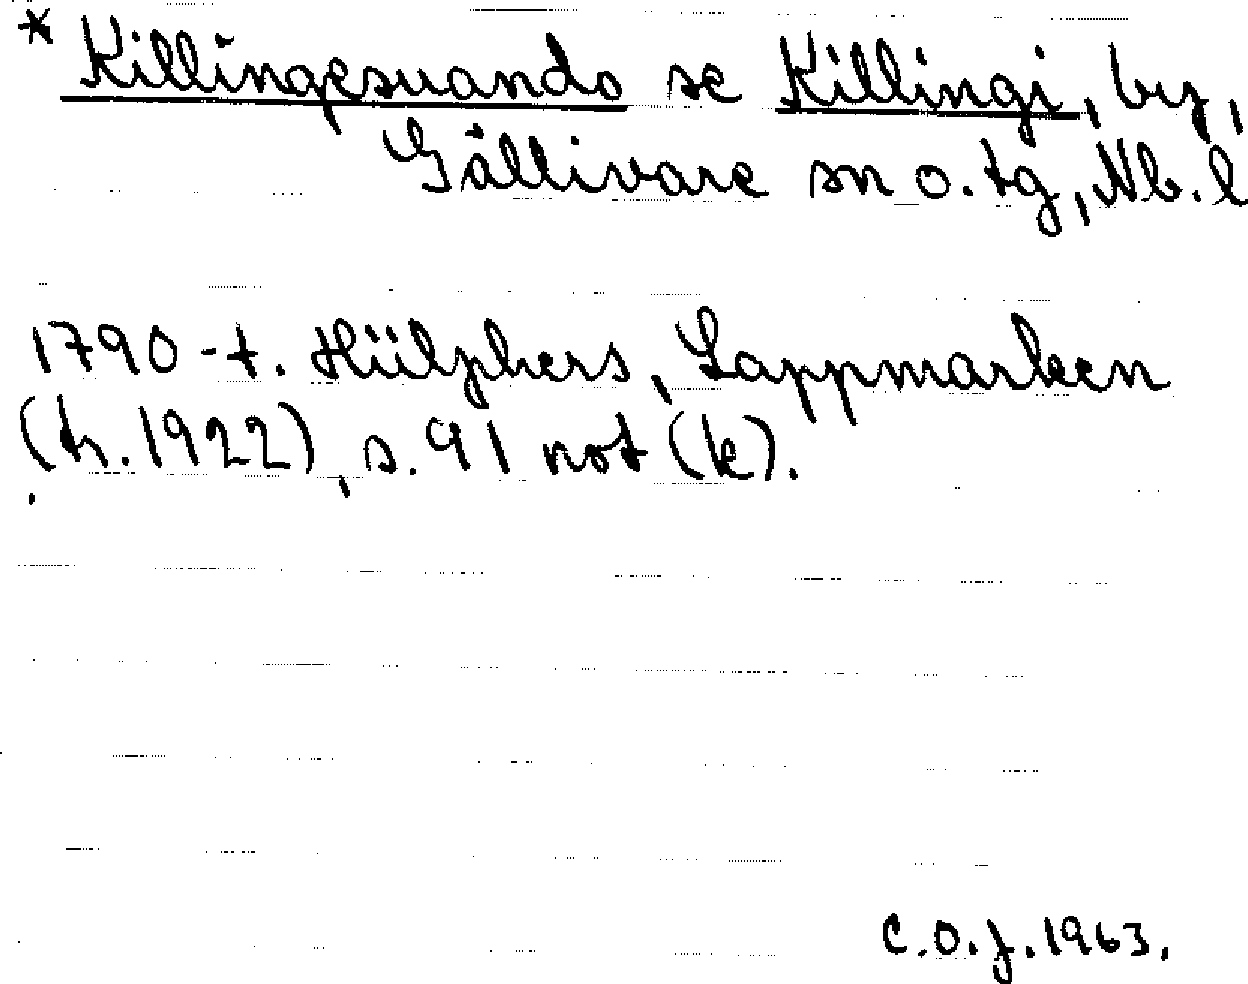 * Killingesuando se Killingi, by,
Gällivare sn o. tg, Nb. l
1790-t. Hülphers, Lappmarken
(tr. 1922), s. 91 not (k).
C.O.J. 1963.